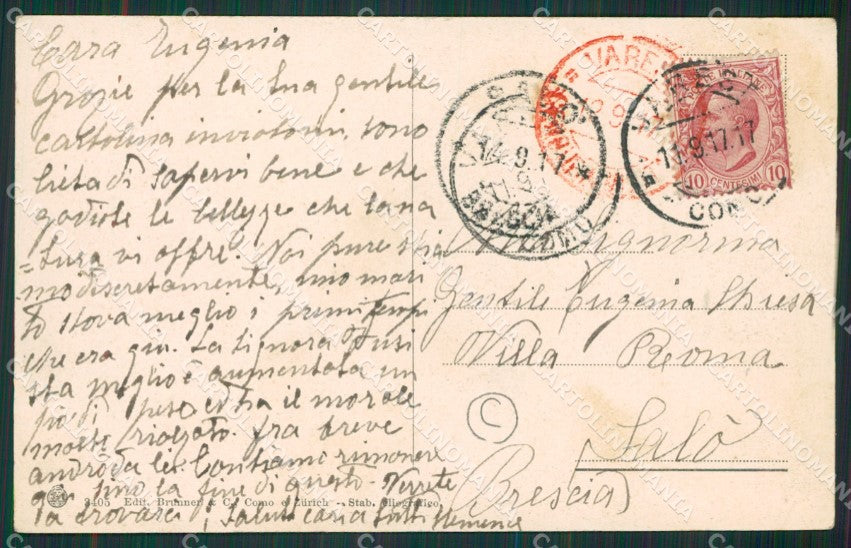 Cara Eugenia
Grazie per la tua gentile
cartolina inviatomi. sono
lieta di sapervi bene e che
godiate le bellezze che la na
tura vi offre. Noi pure stia
=mo discretamente, mio mari
to stava meglio i primi tempi
che era giù. La signora
sta meglio è aumentata un
pò di peso ed ha il morale
molto rialzato. fra breve
andrò da lei. Contiamo rimanere
sino la fine di questo. Verrete
a trovarci? Saluti cari a tutti
3405 Edit. Brunner & C. Como e Zürich - Stab. eliografico.
VARESE
COMO
13.9.17.17
VARESE
14.9.17
BRESCIA
COMO
10 CENTESIMI 10
Signorina
Gentile Eugenia
Villa Roma
Salò
(Brescia)
C
CARTOLINOMANIA